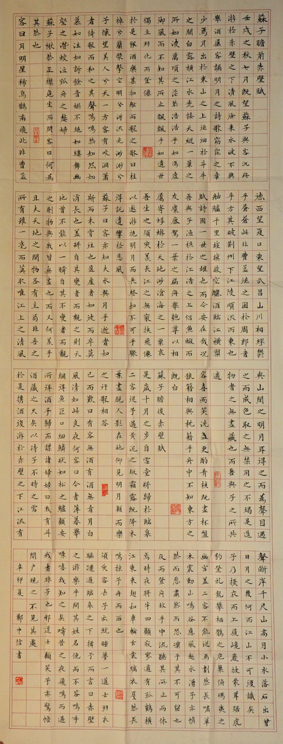 蘇子瞻前赤壁賦
壬戌之秋七月既望蘇子與客泛舟
遊於赤壁之下清風徐來水波不興
舉酒屬客誦明月之詩歌窈窕之章
少焉月出於東山之上徘徊於斗牛
之間白露橫江水光接天縱一葦之
所如凌萬頃之茫然浩浩乎如馮虛
御風而不知其所止飄飄乎如遺世
獨立羽化而登僊
於是飲酒樂甚扣舷而歌之歌曰桂
棹兮蘭槳擊空明兮泝流光渺渺兮
予懷望美人兮天一方客有吹洞簫
者倚歌而和之其聲嗚嗚然如怨如
慕如泣如訴餘音嫋嫋不絕如縷舞幽
壑之潛蛟泣孤舟之嫠婦
蘇子愀然正襟危坐而問客曰何為
其然也
客曰月明星稀烏鵲南飛此非曹孟
德西望夏口東望武昌山川相繆鬱
乎蒼蒼此非孟德之困於周郎者
乎方其破荊州下江陵順流而東也
舳艫千里旌旗蔽空釃酒臨江橫槊
賦詩固一世之雄也而今安在哉況
吾與子漁樵於江渚之上侶魚蝦而
友麋鹿駕一葉之扁舟舉匏樽以相
屬寄蜉蝣於天地渺滄海之一粟哀
吾生之須臾羨長江之無窮挾飛僊
以遨遊抱明月而長終知不可乎驟
得託遺響於悲風
蘇子曰客亦知夫水與月乎逝者如
斯而未嘗往也盈虛者如彼而卒莫
消長也蓋將自其變者而觀之則天
地曾不能以一瞬自其不變者而觀
之則物與我皆無盡也而又何羨乎
且夫天地之間物各有主苟非吾之
所有雖一毫而莫取惟江上之清風
與山間之明月耳得之而為聲目遇
之而成色取之無禁用之不竭是造
物者之無盡藏也而吾與子之所共
適
客喜而笑洗盞更酌肴核既盡杯盤
狼籍相與枕藉乎舟中不知東方之
既白
是歲十月之望步自雪堂將歸於臨皋
二客從予過黃泥之坂霜露既降木
葉盡脫人影在地仰見明月顧而樂
之行歌相答
已而歎曰有客無酒有酒無肴月白
風清如此良夜何客曰今者薄暮舉
網得魚巨口細鱗狀如松江之鱸顧安
所得酒乎歸而謀諸婦婦曰我有斗
酒藏之久矣以待子不時之需
於是攜酒與魚復遊於赤壁之下江流有
聲斷岸千尺山高月小水落石出曾
日月之幾何而江山不可復識矣
予乃攝衣而上履巉巖披蒙茸踞虎
豹登虬龍攀栖鶻之危巢俯馮夷之
幽宮蓋二客不能從焉劃然長嘯草
木震動山鳴谷應風起水涌予亦悄
然而悲肅然而恐凜乎其不可留也
反而登舟放乎中流聽其所止而休
焉時夜將半四顧寂寥適有孤鶴橫
江東來翅如車輪玄裳縞衣戛然長
鳴掠予舟而西也
須臾客去予亦就睡夢一道士羽衣
翩躚過臨皋之下揖予而言曰赤壁
之遊樂乎問其姓名俛而不答嗚呼
噫嘻我知之矣疇昔之夜飛鳴而過
我者非子也邪道士顧笑予亦驚悟
開戶視之不見其處
辛卯夏